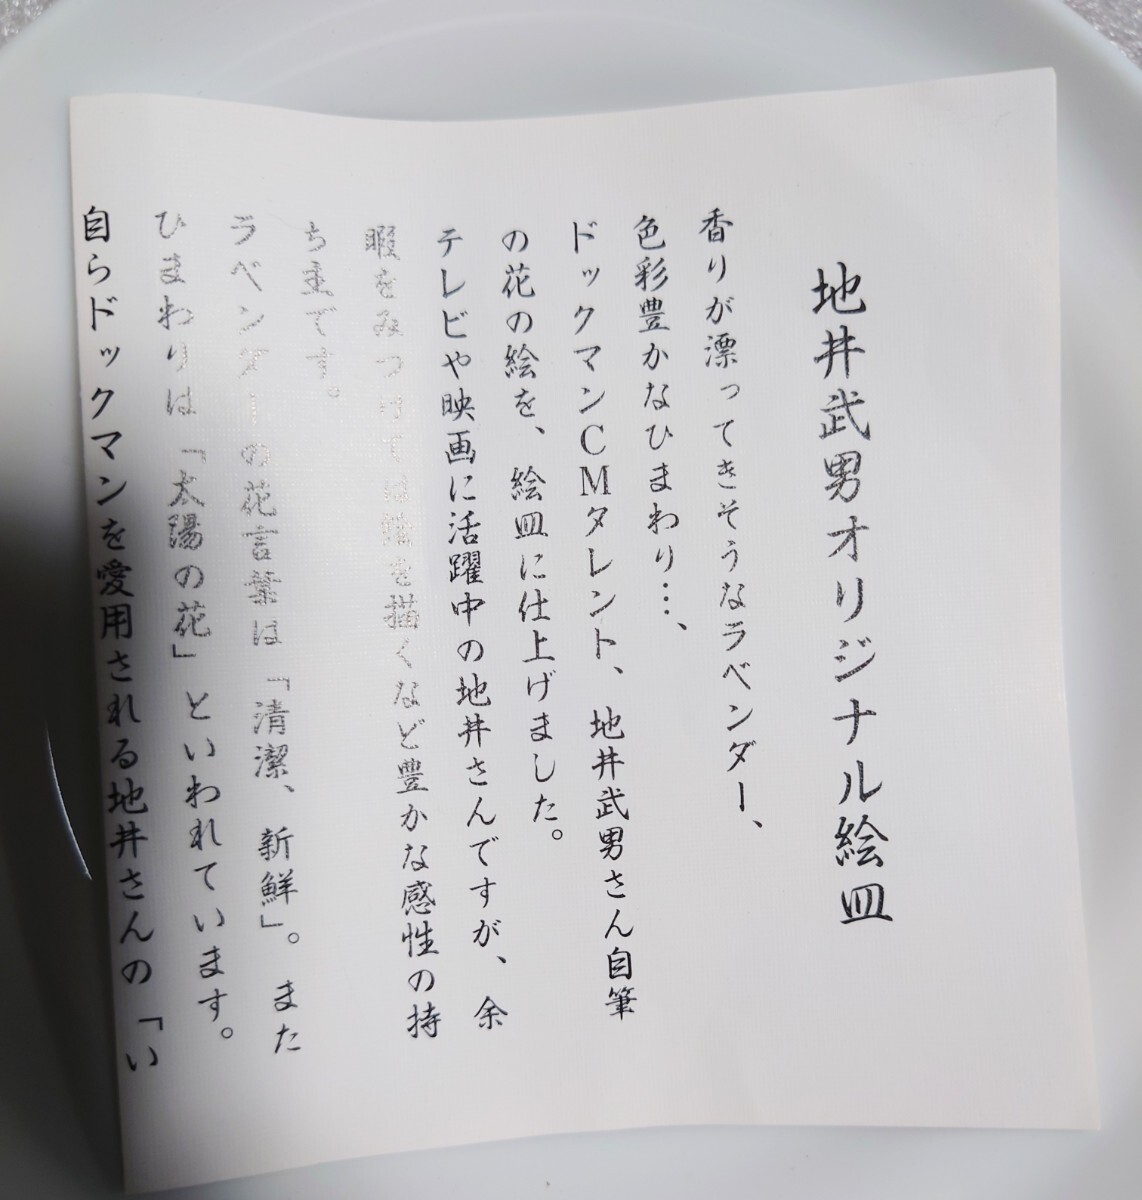 地井武男オリジナル絵皿
香りが漂ってきそうなラベンダー、
色彩豊かなひまわり…、
ドックマンCMタレント、地井武男さん自筆
の花の絵を、絵皿に仕上げました。
テレビや映画に活躍中の地井さんですが、余
暇をみつけては絵を描くなど豊かな感性の持
ち主です。
ラベンダーの花言葉は「清潔、新鮮」。また
ひまわりは「太陽の花」といわれています。
自らドックマンを愛用される地井さんの「い